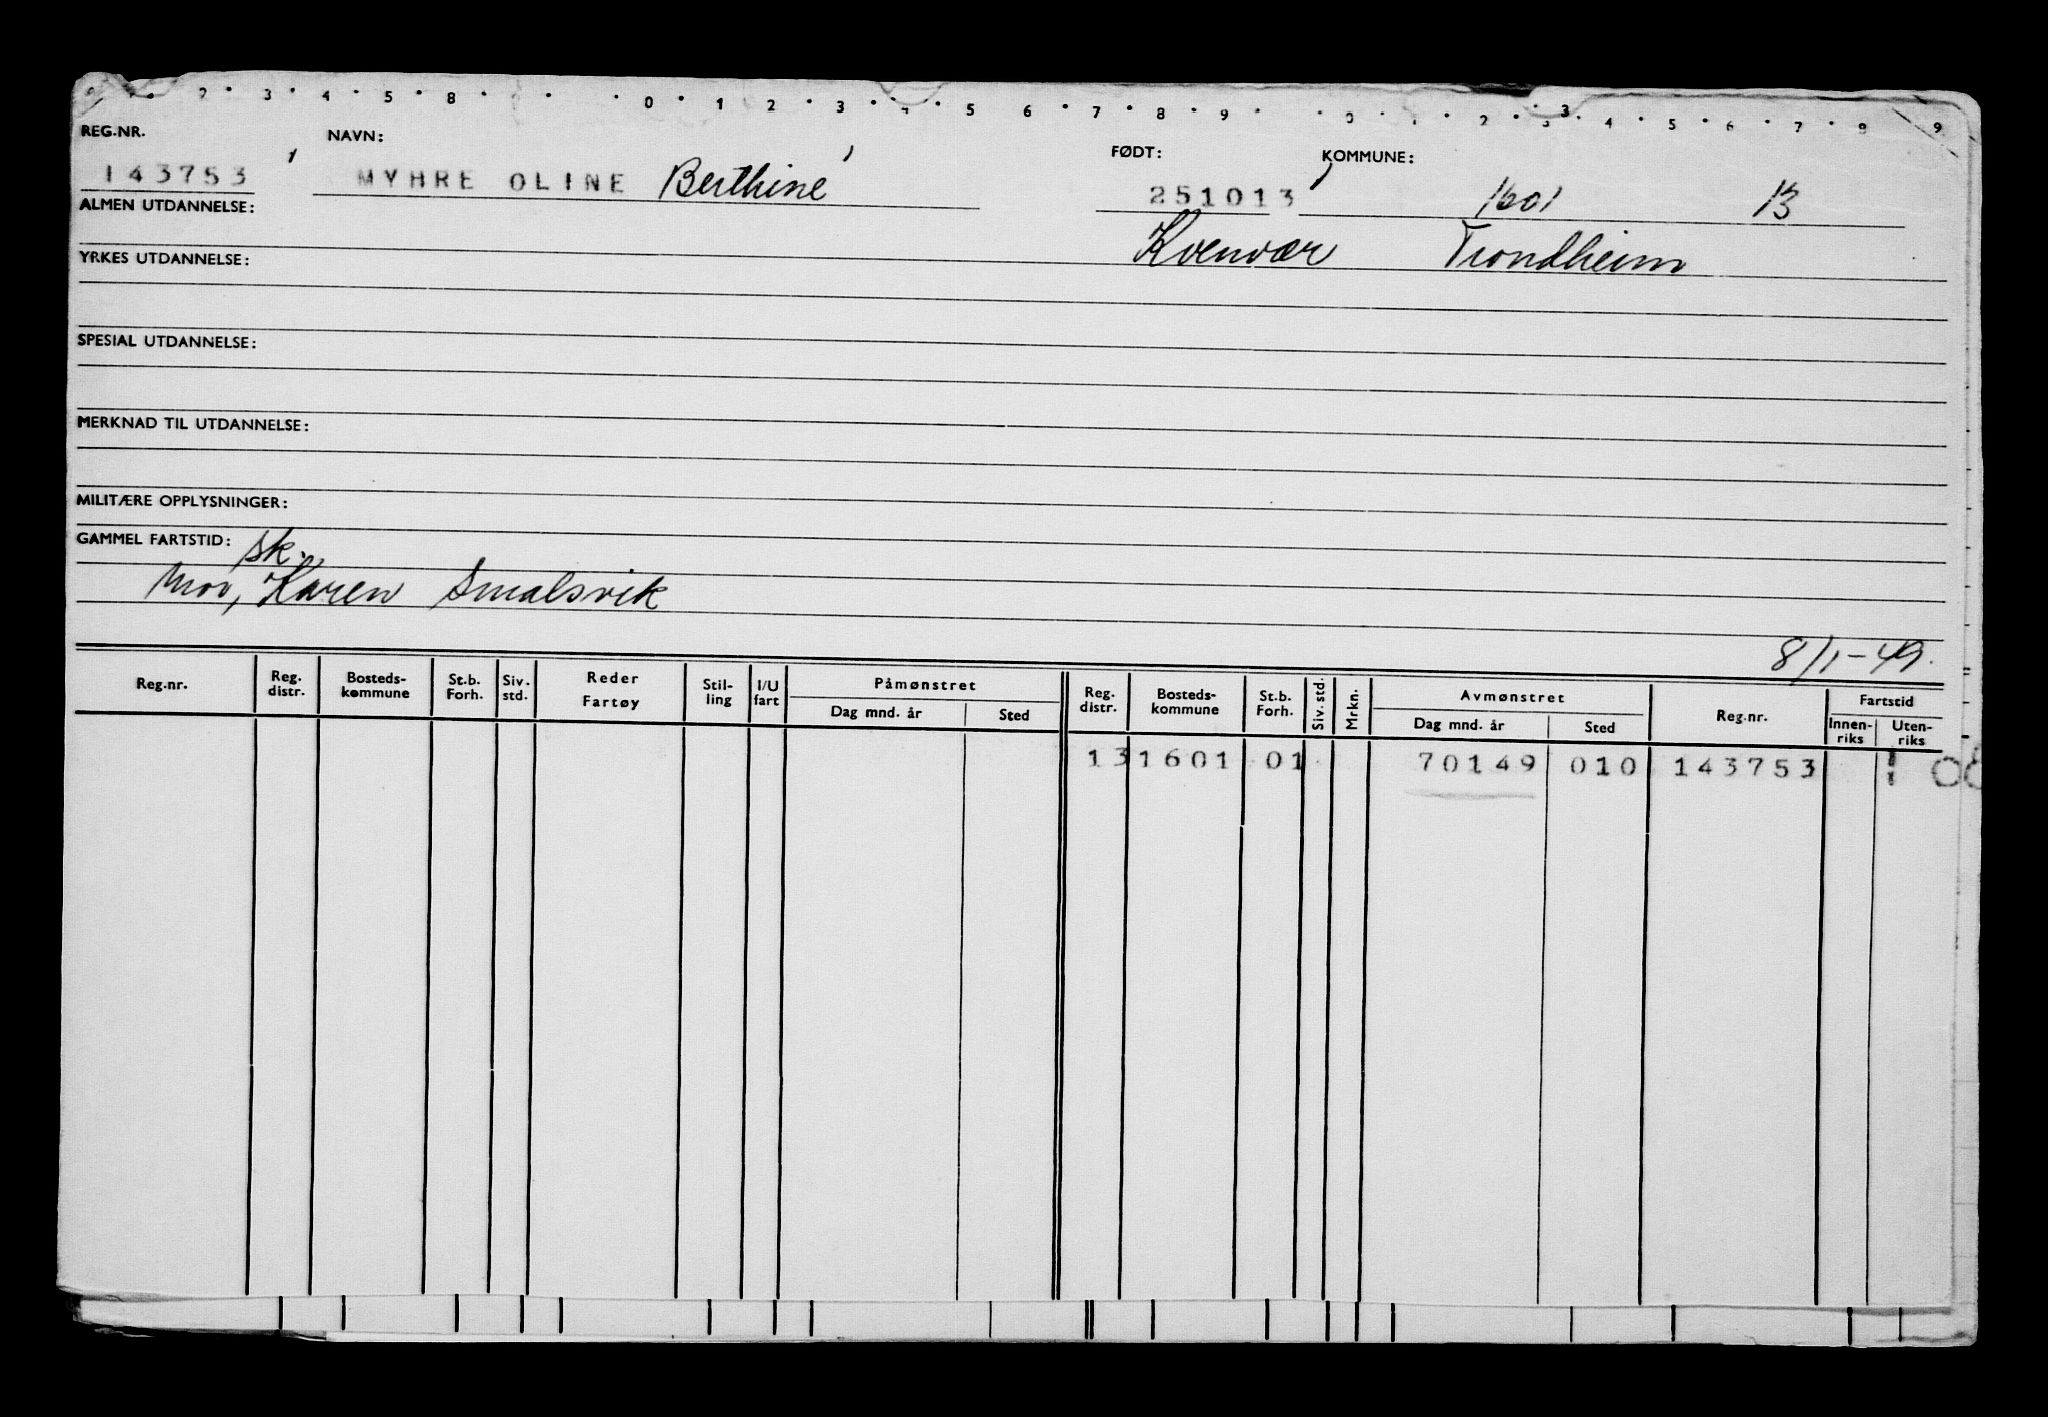 2 3 4 5 8 0 1 2 3 4 5 6 7 8 9 0 1 2 3 4 5 6 7 8 9
3
REG.NR. NAVN: FØDT: KOMMUNE:
143753 MYHRE OLINE Berthine 251013 1601 13
ALMEN UTDANNELSE: Kvenvær Trondheim
YRKES UTDANNELSE:
SPESIAL UTDANNELSE:
MERKNAD TIL UTDANNELSE:
MILITÆRE OPPLYSNINGER:
GAMMEL FARTSTID: sk.
Mor, Karen Smalsvik
8/1-49.
Reg.nr. Reg. distr. Bosteds-kommune St.b. Forh. Siv. std. Reder Fartøy Stil-ling I/U fart Påmønstret Dag mnd. år Sted Reg. distr. Bosteds-kommune St.b. Forh. Siv. std. Mrkn. Avmønstret Dag mnd. år Sted Reg.nr. Fartstid Innen-riks Uten-riks
13 1601 01 70149 010 143753